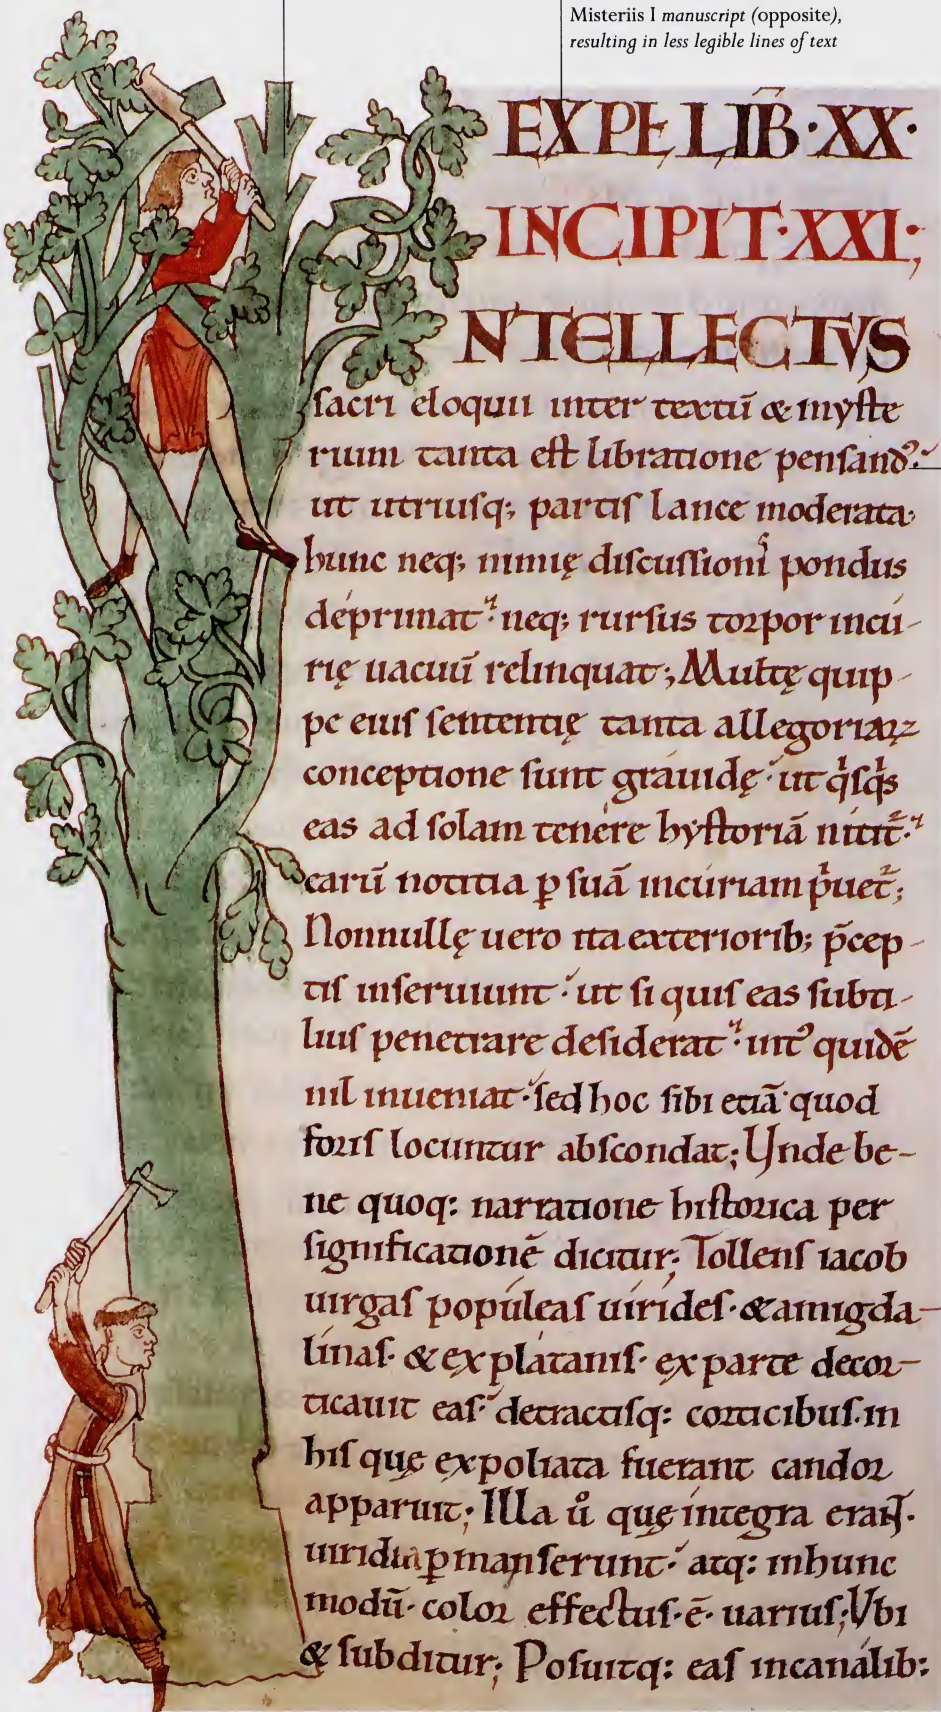 Misteriis I manuscript (opposite),
resulting in less legible lines of text
EXPĿ LIB̄·XX·
INCIPIT·XXI·;
NTELLECTVS
ſacri eloquii inter textū & myſte
rium tanta eſt libratione penſandꝰ·
ut utriuſq; partiſ lance moderata·
hunc neq; nimię diſcuſſioniˢ pondus
deprimat· neq; rurſus torpor incu-
rię uacuū relinquat; Multę quip-
pe eius ſententię tanta allegoriaꝝ
conceptione ſunt grauidę· ut qͥſqͥs
eas ad ſolam tenére hyſtoriā nitit᷑·
earū notitia ꝑ ſuā incuriam pͥuet᷑;
Nonnullę uero ita exteriorib; p̄cep-
tiſ inſeruiunt· ut ſi quiſ eas ſubti-
liuſ penetrare deſiderat· intꝰ quidē
nil inueniat· ſed hoc ſibi etiā quod
foriſ locuntur abſcondat; Unde be-
ne quoq: narratione hiſtorica per
ſignificationē dicitur; Tollenſ iacob
uirgaſ populeaſ uirideſ· & amigda-
linaſ· & ex plátaniſ· ex parte decor-
ticauit eaſ· detractiſq: corticibuſ· in
hiſ quę expoliata fuerant candor
apparuit; Illa ů quę integra eraɴ̄t·
uiridia ꝑmanſerunt· atq: in hunc
modū· color effectuſ· ē· uariuſ; Vbi
& ſubditur; Poſuitq: eaſ in canálib: